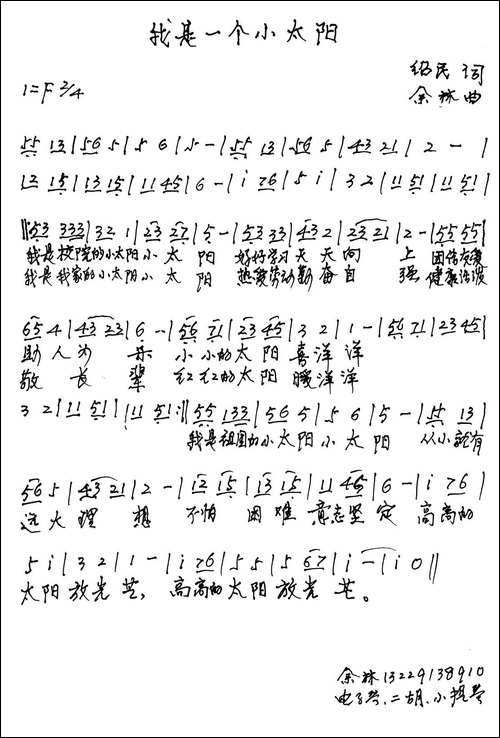 我是一个小太阳
绍民 词
1=F 2/4
余林 曲
55 13 | 56 5 | 5 6 | 5 - | 55 13 | 56 5 | 43 21 | 2 - |
12 15 | 13 15 | 11 45 | 6 - | i 76 | 5 i | 3 2 | 11 51 | 11 51 |
‖: 53 333 | 32 1 | 23 27 | 5 - | 53 33 | 43 2 | 23 21 | 2 - | 55 55 |
我是校院的小太阳小 太 阳 好好学习天 天向 上 团结友爱
我是我家的小太阳小 太 阳 热爱劳动勤 奋自 强 健康活泼
65 4 | 43 23 | 6 - | 56 71 | 23 45 | 3 2 | 1 - | 56 71 | 23 45 |
助人为 乐 小小的太阳喜洋洋
敬 长 辈 红红的太阳暖洋洋
3 2 | 11 51 | 11 51 :‖ 55 133 | 56 5 | 5 6 | 5 - | 55 13 |
我是祖国的小太阳小 太 阳 从小就有
56 5 | 43 21 | 2 - | 12 15 | 13 15 | 11 45 | 6 - | i 76 |
远大理 想 不怕 困难意志坚定 高高的
5 i | 3 2 | 1 - | i 76 | 5 5 | 5 67 | i - | i 0 ‖
太阳放光芒，高高的太阳放光 芒。
余林13229138910
电子琴、二胡、小提琴